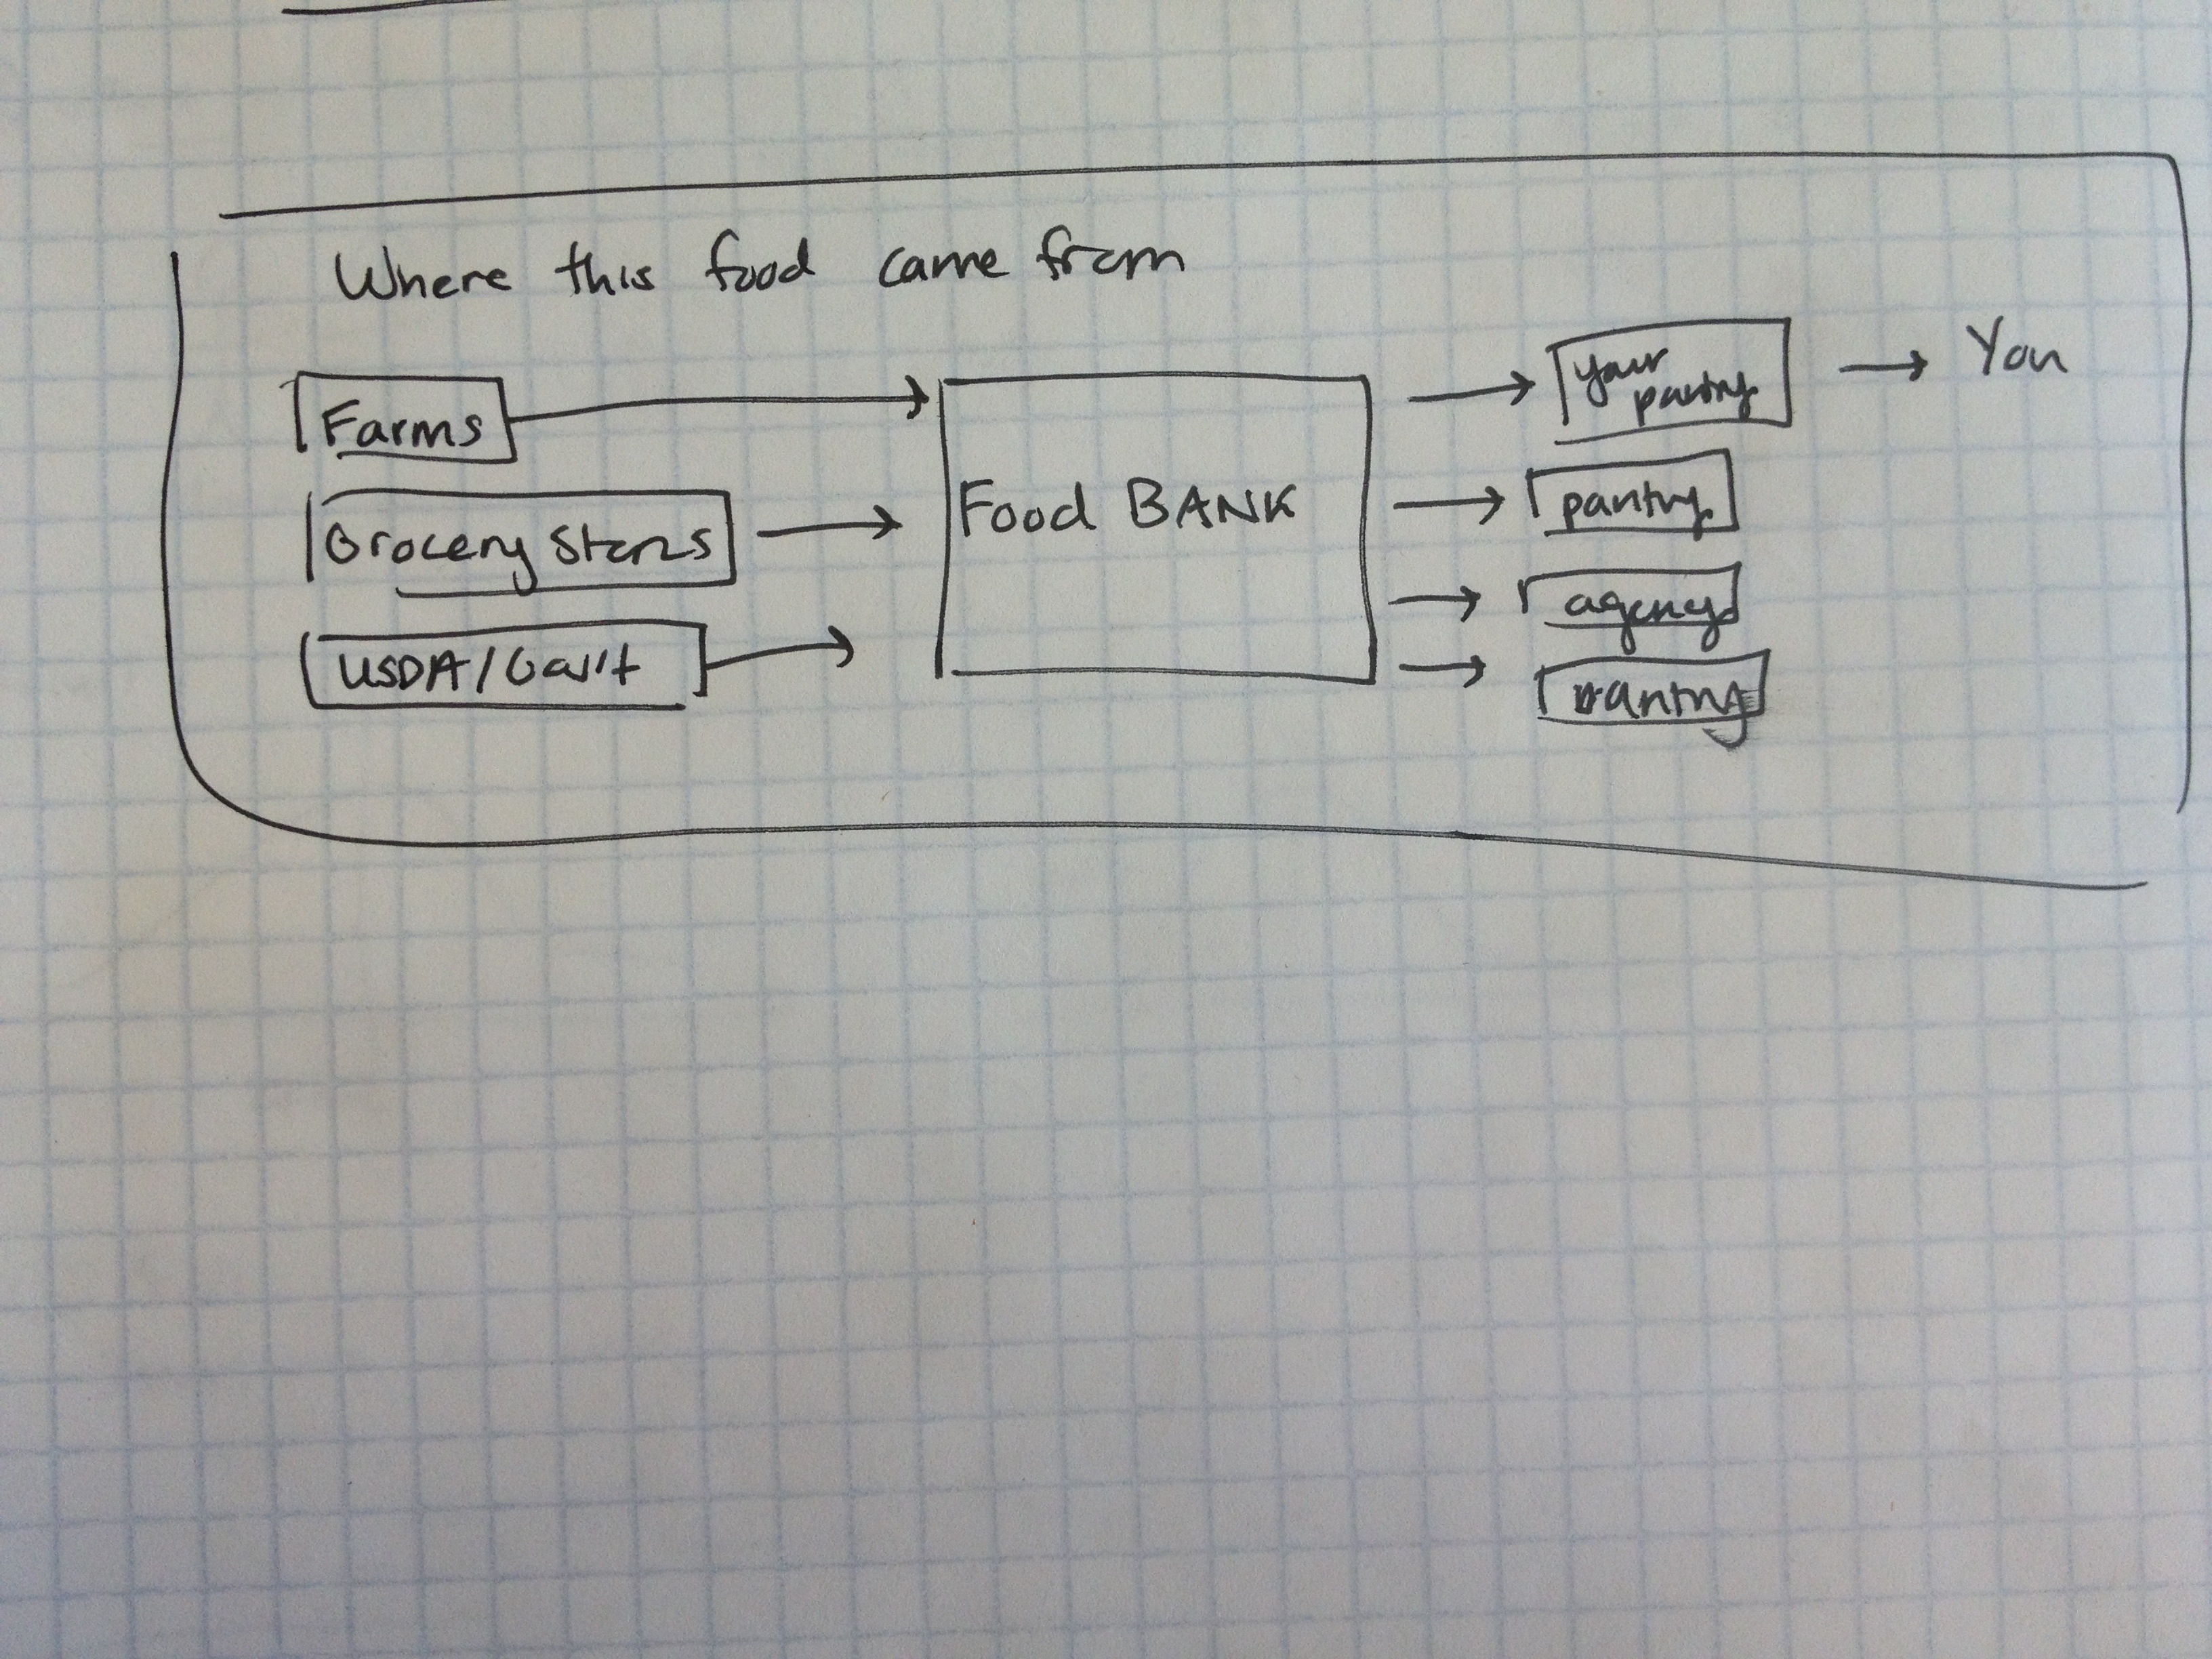 Where this food came from
Farms
Grocery Stores
USDA/Gov't
Food BANK
your
pantry
You
pantry
agency
pantry